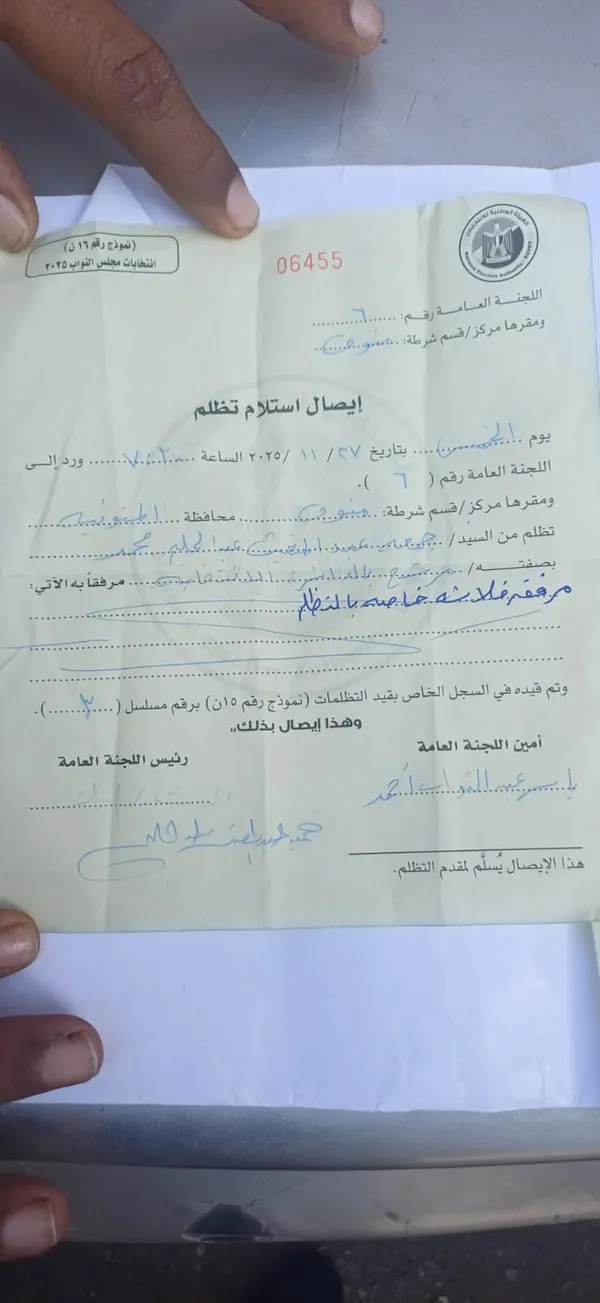 (نموذج رقم ١٦ ن)
انتخابات مجلس النواب ٢٠٢٥
06455
الهيئة الوطنية للانتخابات
National Election Authority - EGYPT
اللجنـــة العـامـــة رقـم: ......٦......
ومقرها مركز/قسم شرطة: ..منوف..
إيصال استلام تظلم
يوم ..الخميس.. بتاريخ ٢٧ / ١١ / ٢٠٢٥ الساعة ..٧,٢٠.. ورد إلى
اللجنة العامة رقم ( ٦ ).
ومقرها مركز/قسم شرطة: ..منوف.. محافظة ..المنوفيه..
تظلم من السيد/ ..جمعه عبد عبد الحليم محمد
بصفتــــه/ ..مرشح بالدائرة.. مرفقاً به الآتي:
مرفقه خاصه بالتظلم
وتم قيده في السجل الخاص بقيد التظلمات (نموذج رقم ١٥ن) برقم مسلسل (....٣....).
وهذا إيصال بذلك،،
أمين اللجنة العامة
رئيس اللجنة العامة
ياسر عبد التواب أحمد
هذا الإيصال يُسلَّم لمقدم التظلم.